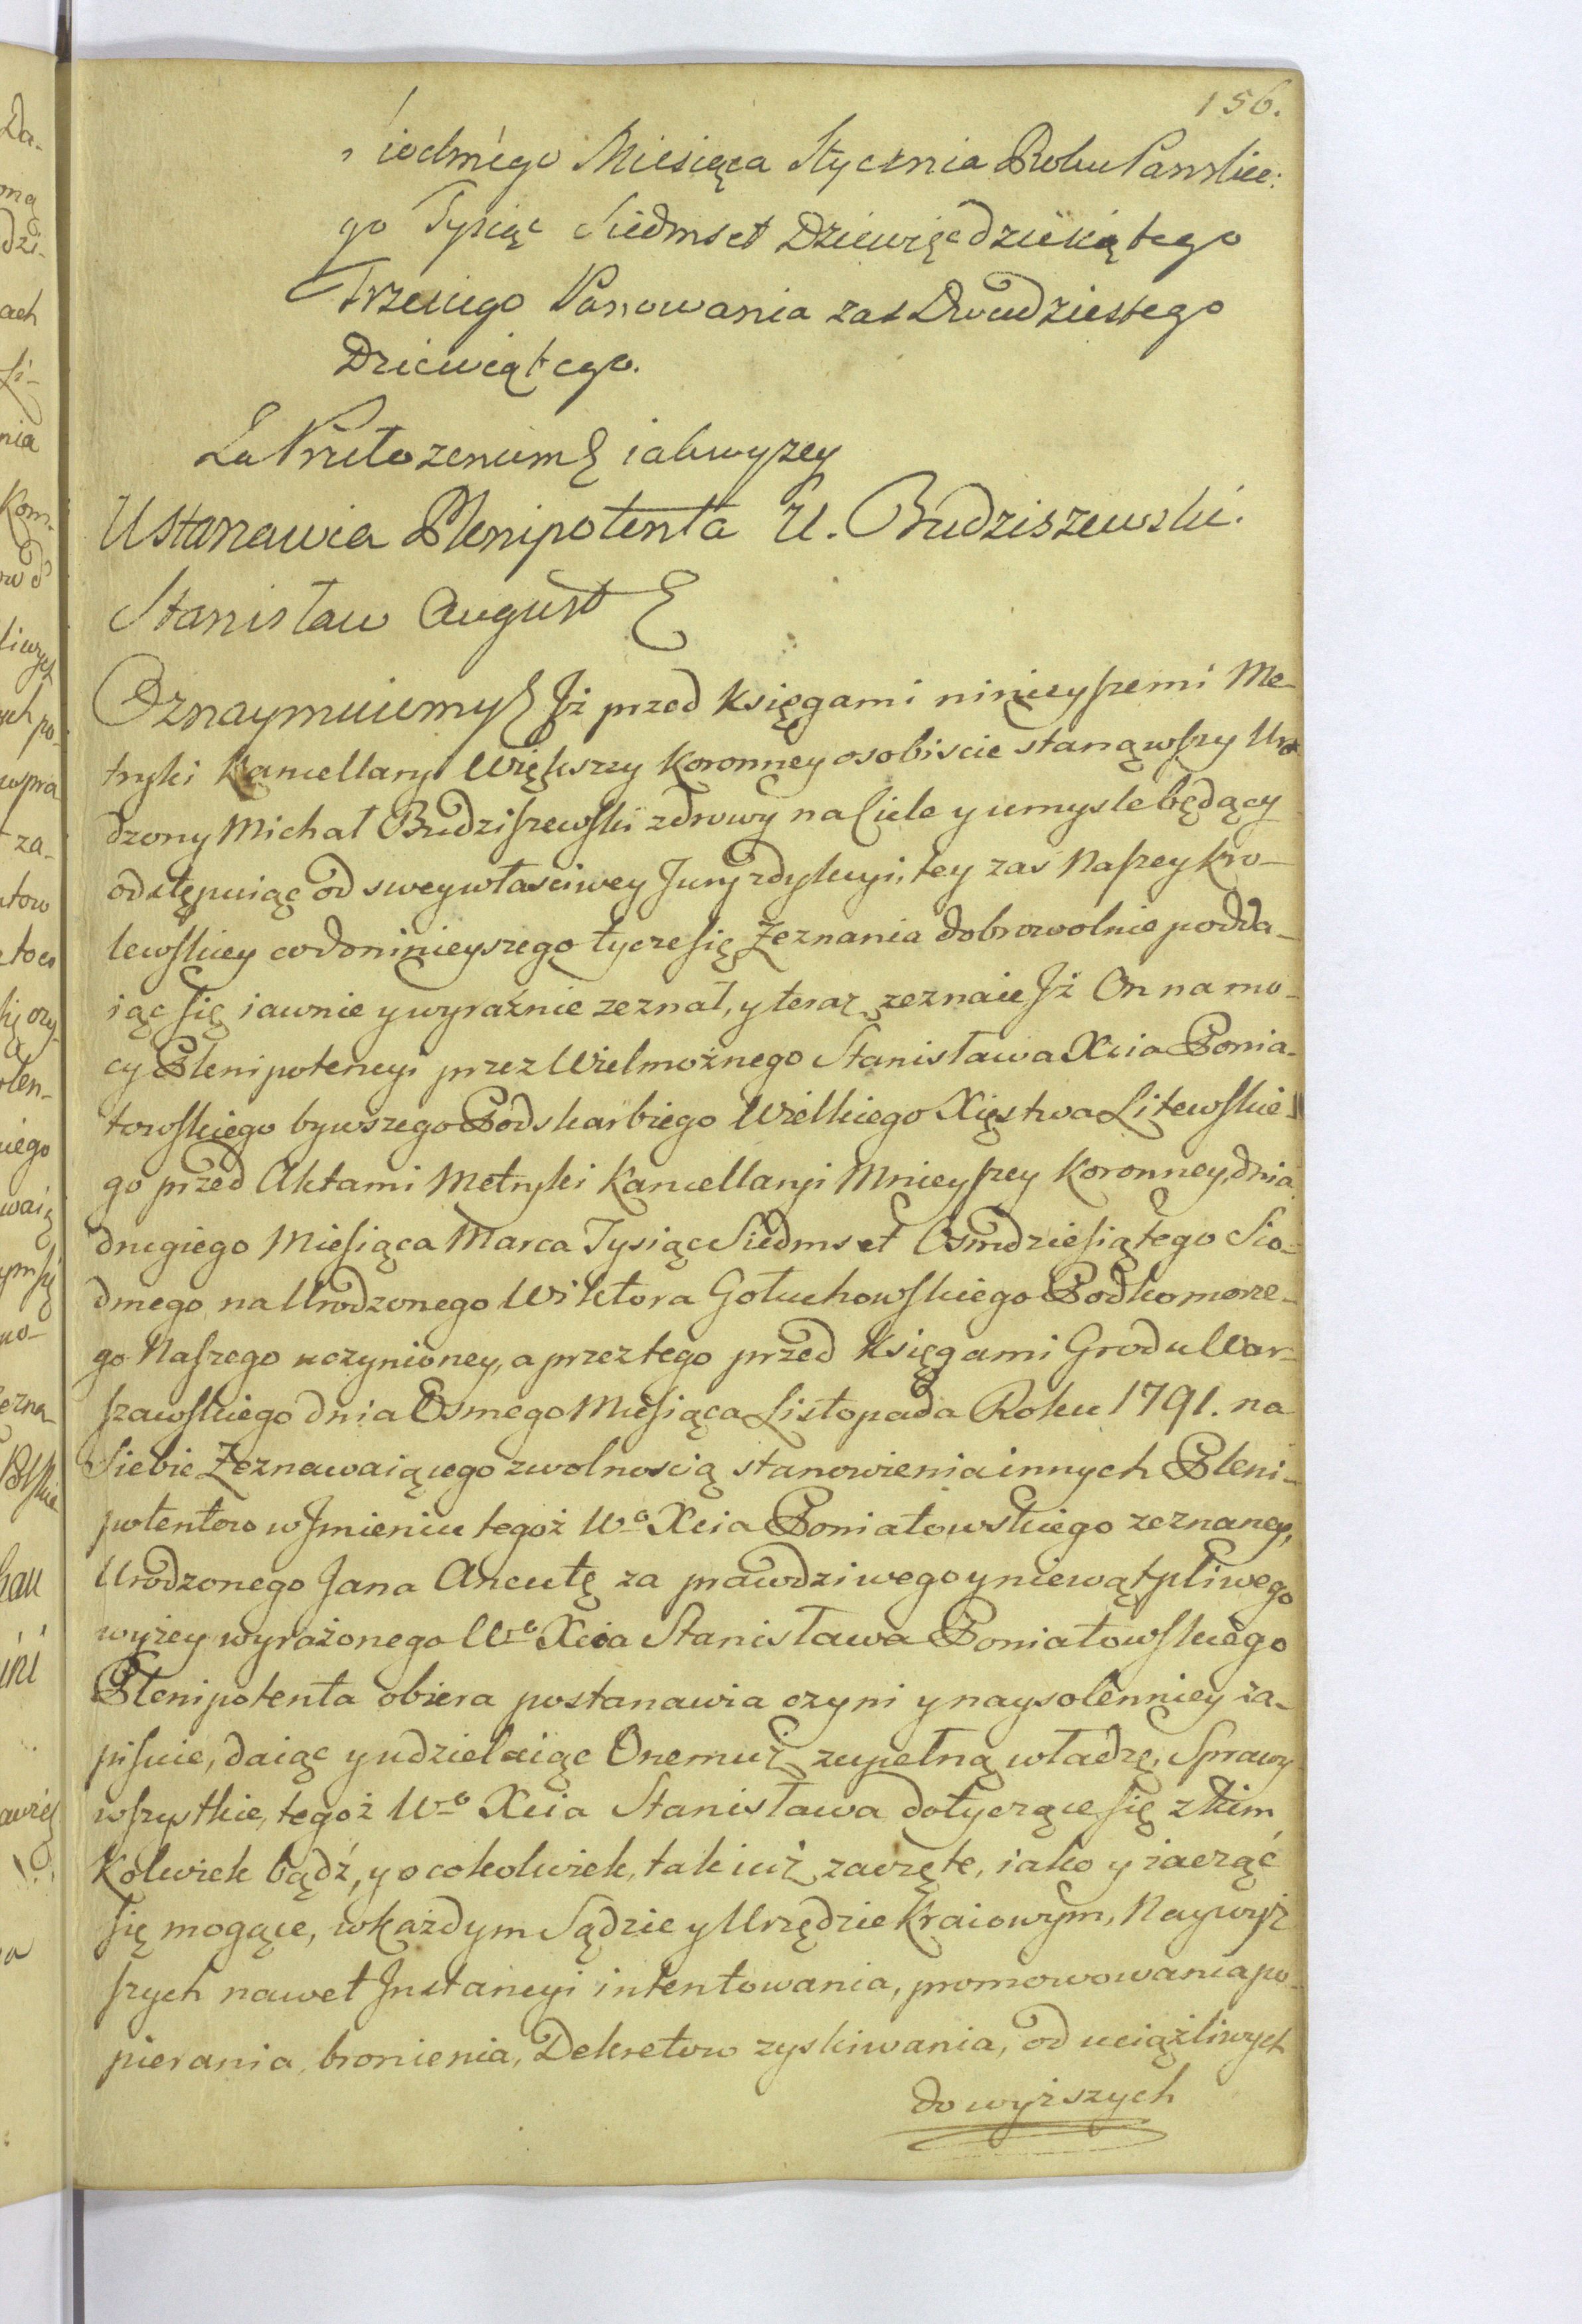 156.
siodmego Miesiąca Stycznia Roku Panskie:
go Tysiąc Siedmset Dziewięćdziesiątego
Trzeciego Panowania zas Dwudziestego
Dziewiątego.
Za Przełozeniem & iak wyzey
Ustanawia Plenipotenta U. Budziszewski.
Stanisław August &
Oznaymuiemy & Jż przed Księgami ninieyszemi Me-
tryki Kancellaryi Większey Koronney osobiscie stanąwszy Uro
dzony Michał Budziszewski zdrowy na Ciele y umysle będący
odstępuiąc od swey własciwey Juryzdykcyi, tey zas Naszey Kro-
lewskiey co do ninieyszego tycze się Zeznania dobrowolnie podda-
iąc się iawnie y wyraźnie zeznał, y teraz zeznaie Jż On na mo-
cy Plenipotencyi przez Wielmożnego Stanisława Xcia Ponia-
towskiego bywszego Podskarbiego Wielkiego Xięstwa Litewskie-
go przed Aktami Metryki Kancellaryi Mnieyszey Koronney, dnia
drugiego Miesiąca Marca Tysiąc Siedmset Osmdziesiątego Sio-
dmego na Urodzonego Wiktora Gołuchowskiego Podkomorze-
go Naszego uczynioney, a przez tego przed Księgami Grodu War-
szawskiego dnia Osmego Miesiąca Listopada Roku 1791. na
Siebie Zeznawaiącego z wolnoscią stanowienia innych Pleni-
potentow w Jmieniu tegoż Wo Xcia Poniatowskiego zeznaney,
Urodzonego Jana Ancutę za prawdziwego y niewątpliwego
wyżey wyrażonego Wo Xcia Stanisława Poniatowskiego
Plenipotenta obiera postanawia czyni y naysolenniey za-
pisuie, daiąc y udzielaiąc Onemuż zupełną władzę, Sprawy
wszystkie, tegoż Wo Xcia Stanisława dotyczące się z kim
Kolwiek bądź, y o cokolwiek, tak iuż zaczęte, iako y zacząć
się mogące, w każdym Sądzie y Urzędzie Kraiowym, Naywyż
szych nawet Jnstancyi intentowania, promowowania po-
pierania bronienia, Dekretow zyskiwania, od uciążliwych
do wyższych